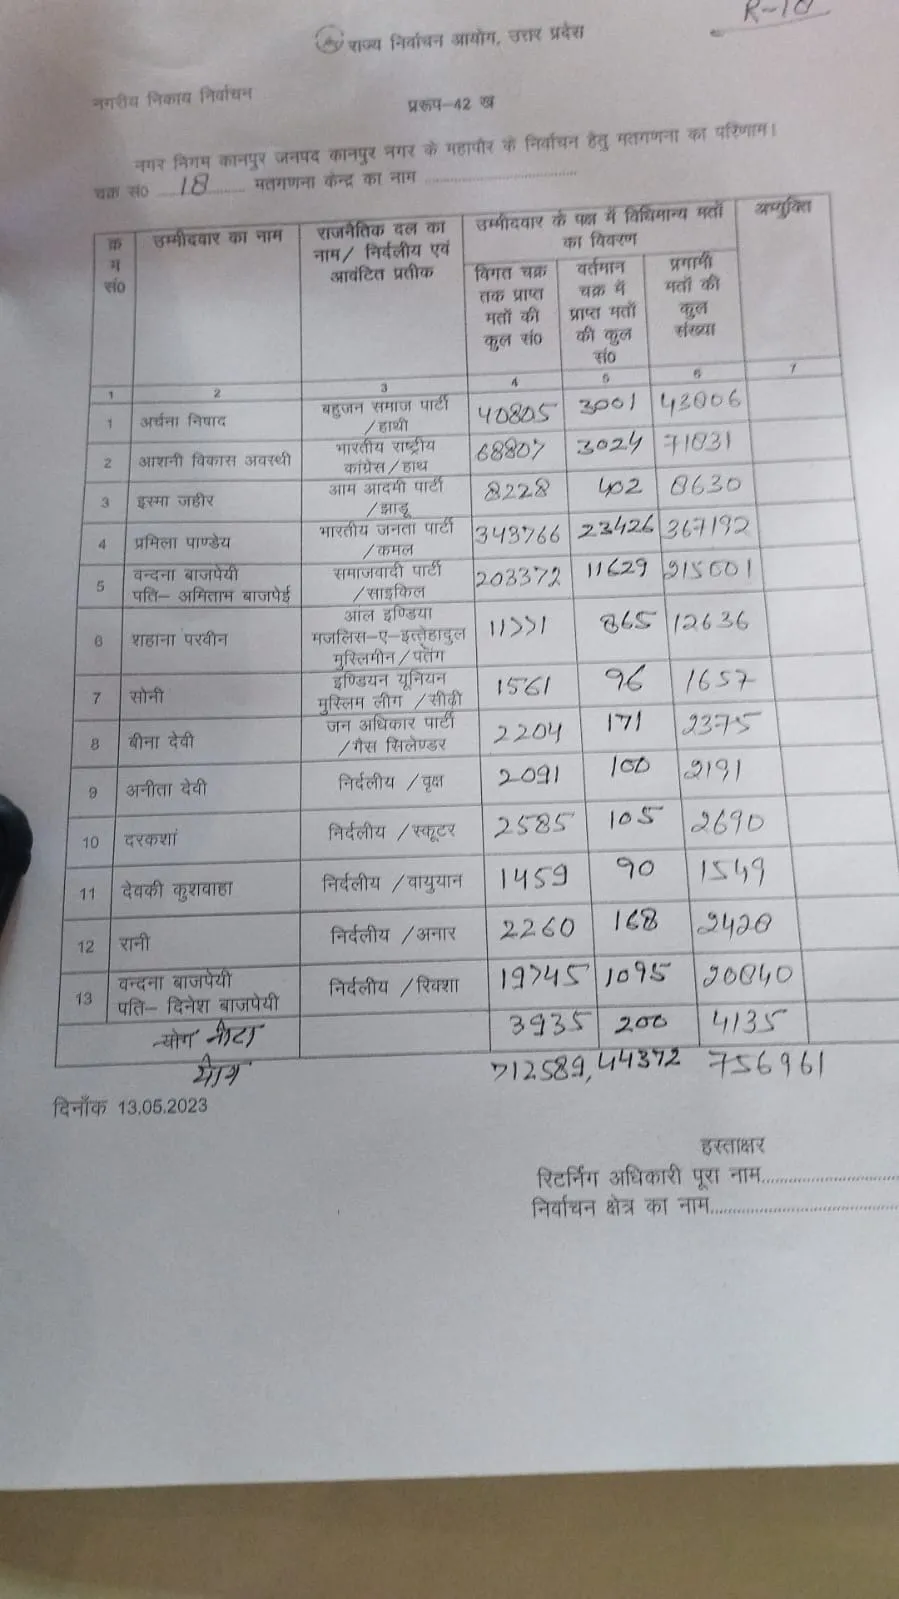 R-18
राज्य निर्वाचन आयोग, उत्तर प्रदेश
नगरीय निकाय निर्वाचन
प्ररूप-42 ख
नगर निगम कानपुर जनपद कानपुर नगर के महापौर के निर्वाचन हेतु मतगणना का परिणाम।
चक्र सं० ....18.... मतगणना केन्द्र का नाम ....................
क्रम सं० उम्मीदवार का नाम राजनैतिक दल का नाम/ निर्दलीय एवं आवंटित प्रतीक उम्मीदवार के पक्ष में विधिमान्य मतों का विवरण अभ्युक्ति
विगत चक्र तक प्राप्त मतों की कुल सं० वर्तमान चक्र में प्राप्त मतों की कुल सं० प्रगामी मतों की कुल संख्या
1 2 3 4 5 6 7
1 अर्चना निषाद बहुजन समाज पार्टी /हाथी 40805 3001 43806
2 आशनी विकास अवस्थी भारतीय राष्ट्रीय कांग्रेस/हाथ 68807 3024 71831
3 इस्मा जहीर आम आदमी पार्टी /झाडू 8228 402 8630
4 प्रमिला पाण्डेय भारतीय जनता पार्टी /कमल 343766 23426 367192
5 वन्दना बाजपेयी पति- अमिताभ बाजपेई समाजवादी पार्टी /साइकिल 203372 11629 215001
6 शहाना परवीन आल इण्डिया मजलिस-ए-इत्तेहादुल मुस्लिमीन/पतंग 11771 865 12636
7 सोनी इण्डियन यूनियन मुस्लिम लीग /सीढ़ी 1561 96 1657
8 बीना देवी जन अधिकार पार्टी /गैस सिलेण्डर 2204 171 2375
9 अनीता देवी निर्दलीय /वृक्ष 2091 100 2191
10 दरकशां निर्दलीय /स्कूटर 2585 105 2690
11 देवकी कुशवाहा निर्दलीय /वायुयान 1459 90 1549
12 रानी निर्दलीय /अनार 2260 168 2428
13 वन्दना बाजपेयी पति- दिनेश बाजपेयी निर्दलीय /रिक्शा 19745 1095 20840
योग नोटा 3935 200 4135
योग 712589, 44372 756961
दिनाँक 13.05.2023
हस्ताक्षर
रिटर्निंग अधिकारी पूरा नाम....................
निर्वाचन क्षेत्र का नाम....................